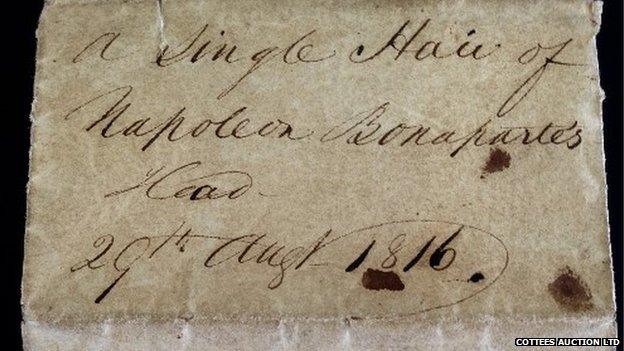 A Single Hair of
Napoleon Bonaparte's
Head
29th Augt 1816.
COTTEES AUCTION LTD